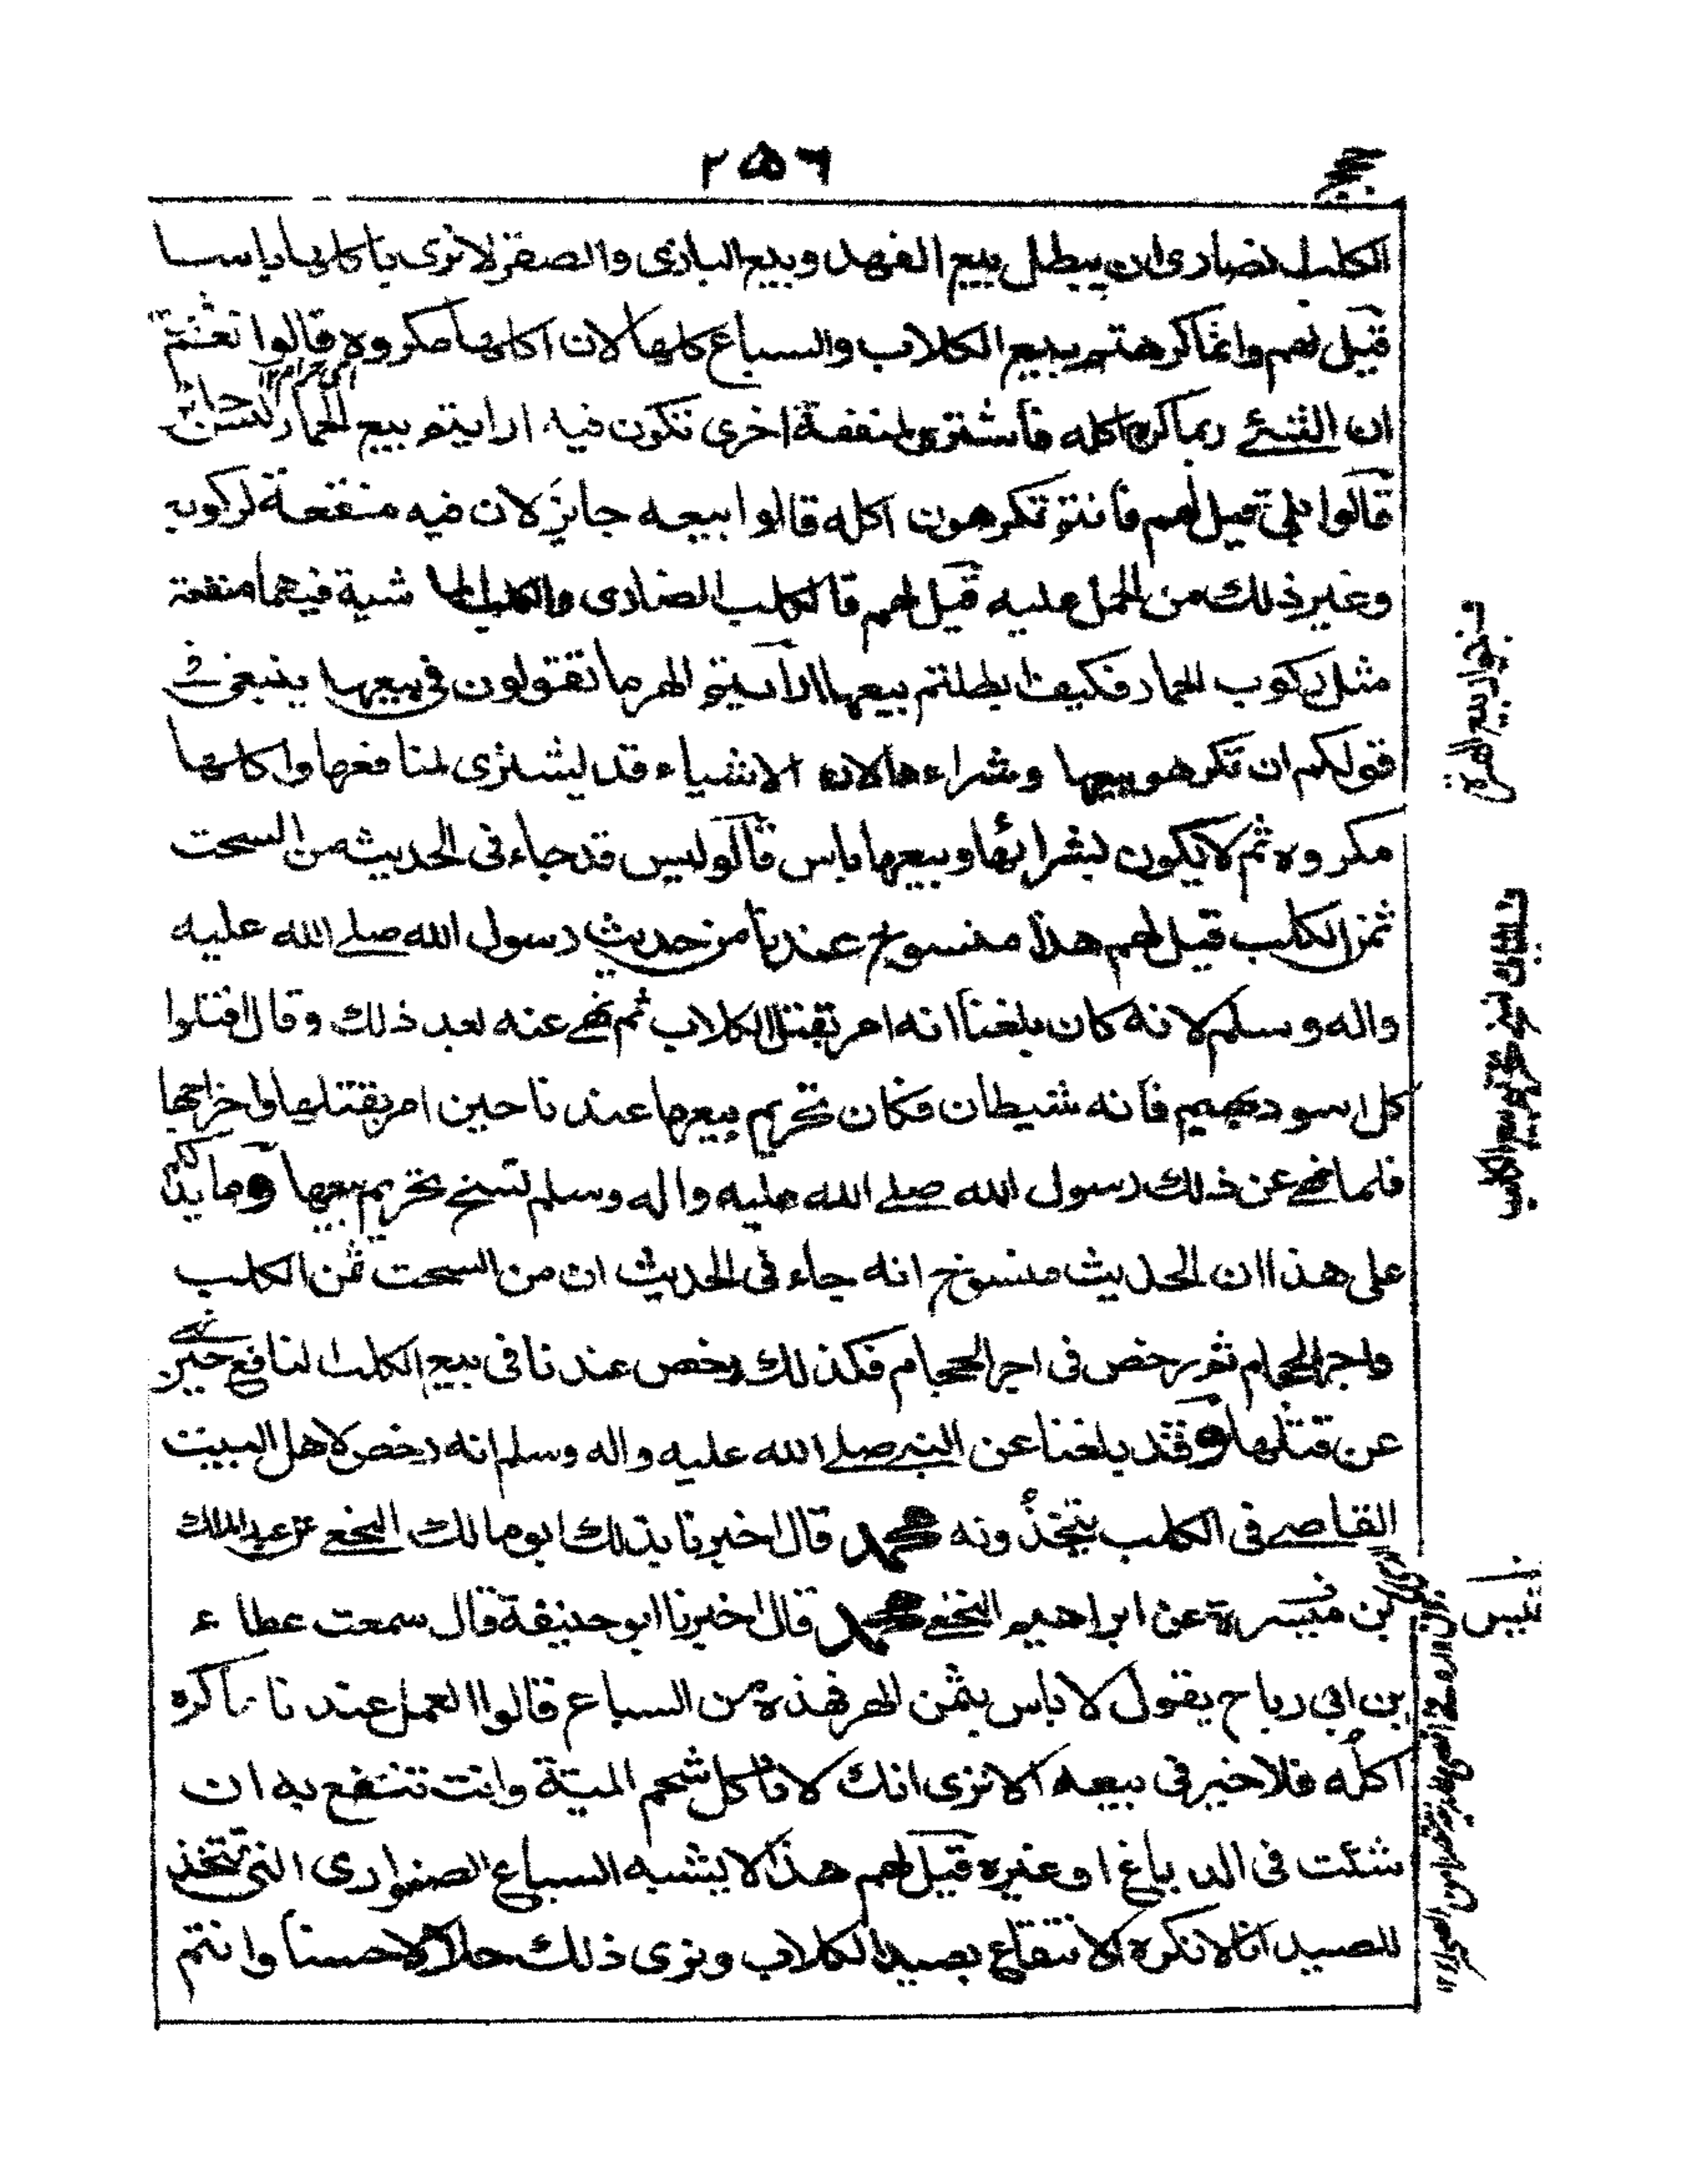 ٢٥٦
الكلب الضاري ان يبطل بيع الفهد وبيع البازي والصقر لا نرى باكلها باسا
قيل لهم وانما كرهتم بيع الكلاب والسباع كلها لان اكلها مكروه قالوا نعم
ان الشئ ربما كره اكله فاشترى لمنفعة اخرى تكون فيه ارايتم بيع الحمار
قالوا بلى قيل لهم فانتم تكرهون اكله قالوا بيعه جايز لان فيه منفعة لركوبه
وغير ذلك من الحمل عليه قيل لهم فالكلب الضارى والكلب الماشية فيهما منفعة
مثل ركوب الحمار فكيف ابطلتم بيعها ارأيتم الهر ما تقولون فى بيعها ينبغى فى
قولكم ان تكرهو بيعها وشراءها لان الاشياء قد يشترى لمنافعها واكلها
مكروه ثم لا يكون بشرائها وبيعها باس قالو ليس قد جاء فى الحديث من السحت
ثمن الكلب قيل لهم هذا منسوخ عندنا من حديث رسول الله صلى الله عليه
واله وسلم لانه كان بلغنا انه امر بقتل الكلاب ثم نهى عنه بعد ذلك وقال اقتلوا
كل اسود بهيم فانه شيطان فكان تحريم بيعها عندنا حين امر بقتلها واخراجها
فلما نهى عن ذلك رسول الله صلى الله عليه واله وسلم نسخ تحريم بيعها ومما يدلكم
على هذا ان الحديث منسوخ انه جاء فى الحديث ان من السحت ثمن الكلب
واجر الحجام ثم رخص فى اجر الحجام فكذلك رخص عندنا فى بيع الكلب لمنافع حين نهى
عن قتلها وقد بلغنا عن النبى صلى الله عليه واله وسلم انه رخص لاهل البيت
القاصى فى الكلب يتخذونه محمد قال اخبرنا بذلك ابو مالك النخعى عن عبد الملك
بن ميسرة عن ابراهيم النخعى محمد قال اخبرنا ابو حنيفة قال سمعت عطاء
بن ابى رباح يقول لا باس بثمن الهر فهذه من السباع قالوا العمل عندنا ما كره
اكله فلا خير فى بيعه الا ترى انك لا تاكل شحم الميتة وانت تنتفع به ان
شئت فى الدباغ او غيره قيل لهم هذا لا يشبه السباع الضوارى التى تتخذ
للصيد انا لا نكره الانتفاع بصيد الكلاب ونرى ذلك حلالا حسنا وانتم
جواز بيع الهرة